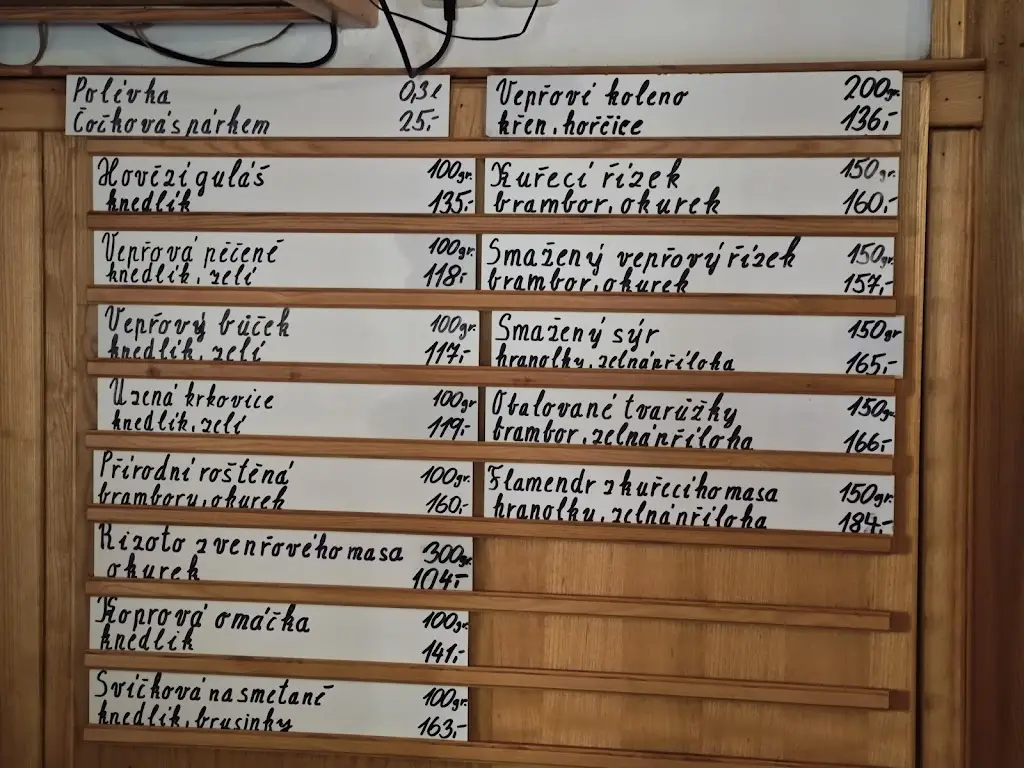 Polívka 0,3l
Čočková s párkem 25,-
Hovězí guláš 100gr.
knedlík 135,-
Vepřová pečeně 100gr.
knedlík, zelí 118,-
Vepřový bůček 100gr.
knedlík, zelí 117,-
Uzená krkovice 100gr
knedlík, zelí 119,-
Přírodní roštěná 100gr.
brambory, okurek 160,-
Rizoto z vepřového masa 300gr.
okurek 104,-
Koprová omáčka 100gr.
knedlík 141,-
Svíčková na smetaně 100gr.
knedlík, brusinky 163,-
Vepřové koleno 200gr.
křen, hořčice 136,-
Kuřecí řízek 150gr.
brambor, okurek 160,-
Smažený vepřový řízek 150gr.
brambor, okurek 157,-
Smažený sýr 150gr
hranolky, zelná příloha 165,-
Obalované tvarůžky 150gr.
brambor, zelná příloha 166,-
Flamendr z kuřecího masa 150gr.
hranolky, zelná příloha 184,-